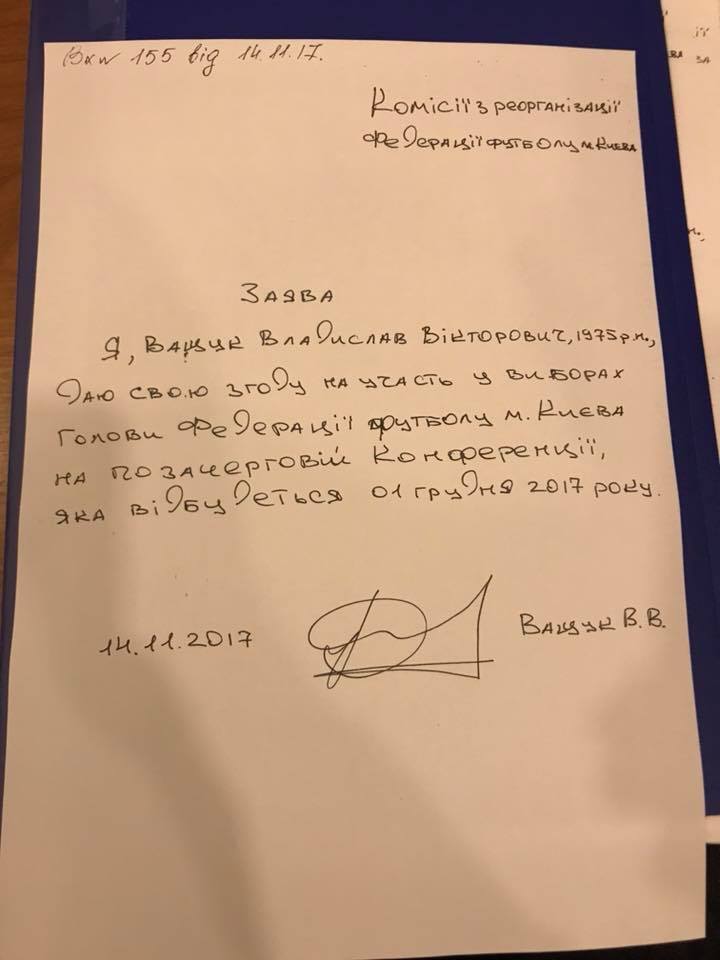 Вхи 155 від 14.11.17.
Комісії з реорганізації
Федерації футболу м. Києва
Заява
Я, Ващук Владислав Вікторович, 1975 р.н.,
даю свою згоду на участь у виборах
голови Федерації футболу м. Києва
на позачерговій Конференції,
яка відбудеться 01 грудня 2017 року.
14.11.2017
Ващук В.В.